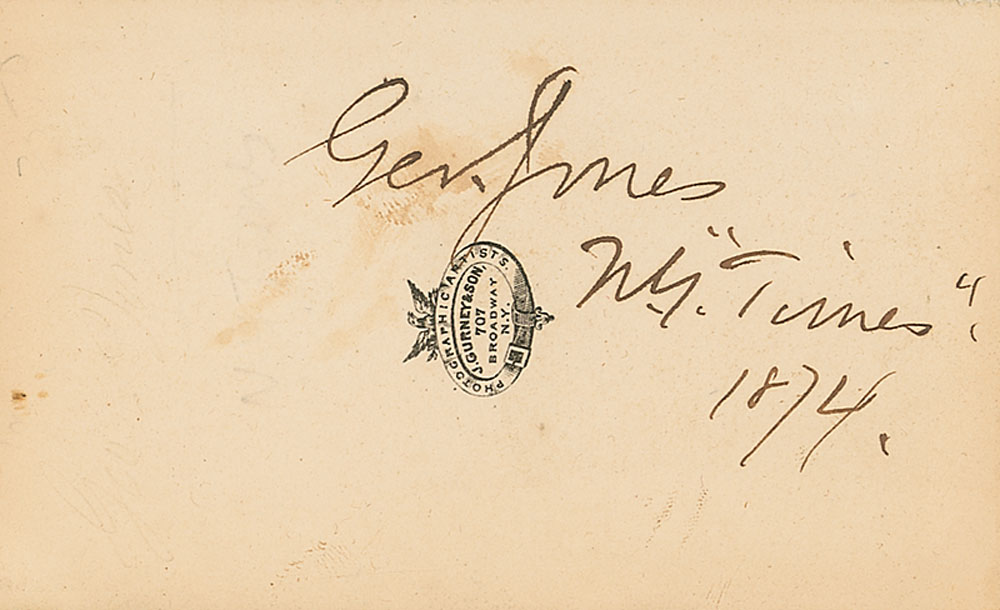 Geo. Jones
N.Y. "Times".
1874.
PHOTOGRAPHIC ARTISTS.
J. GURNEY & SON,
707
BROADWAY
N.Y.